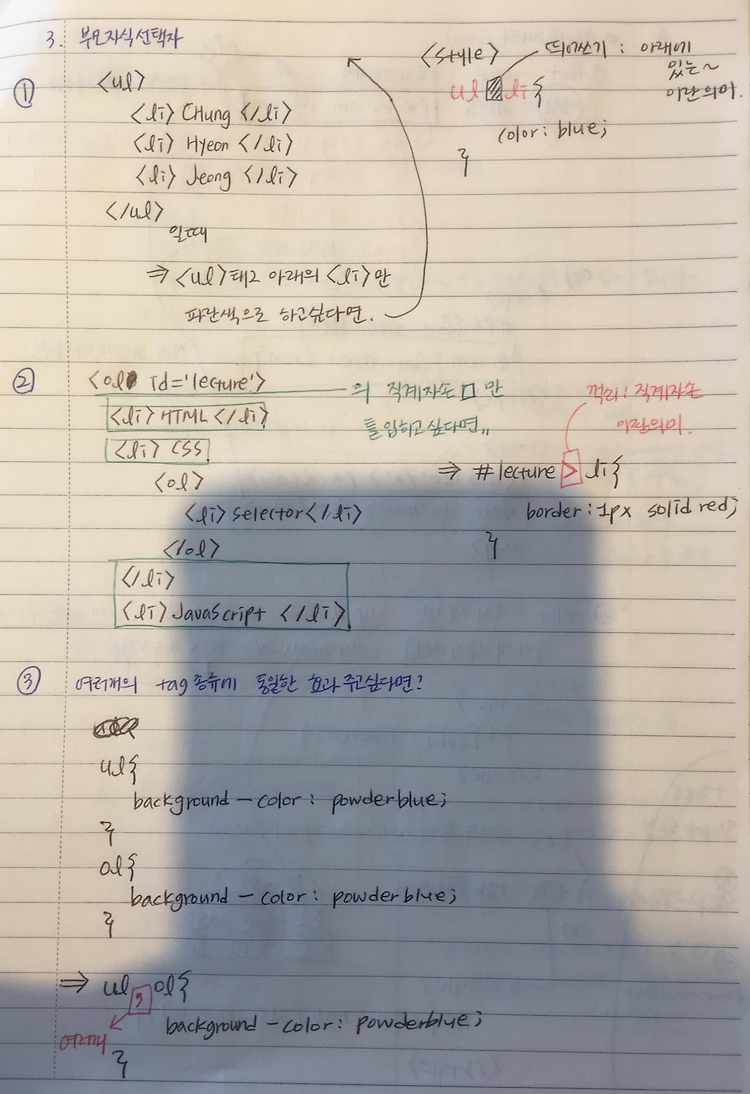 3. 부모자식선택자
①
<ul>
<li> CHung </li>
<li> Hyeon </li>
<li> Jeong </li>
</ul>
일때
⇒ <ul>태그 아래의 <li>만
파란색으로 하고싶다면.
<style>
ul li{
color: blue;
}
띄어쓰기 : 아래에
있는~
이란의미.
②
<ol id='lecture'>
의 직계자손 □ 만
<li> HTML </li>
틀입하고싶다면,,
<li> CSS
<ol>
<li> selector </li>
</ol>
</li>
<li> JavaScript </li>
꺽쇠: 직계자손
이란의미.
⇒ #lecture > li{
border: 1px solid red;
}
③ 여러개의 tag 종류에 동일한 효과 주고싶다면?
ul{
background-color: powderblue;
}
ol{
background-color: powderblue;
}
⇒ ul, ol{
background-color: powderblue;
여러개
}